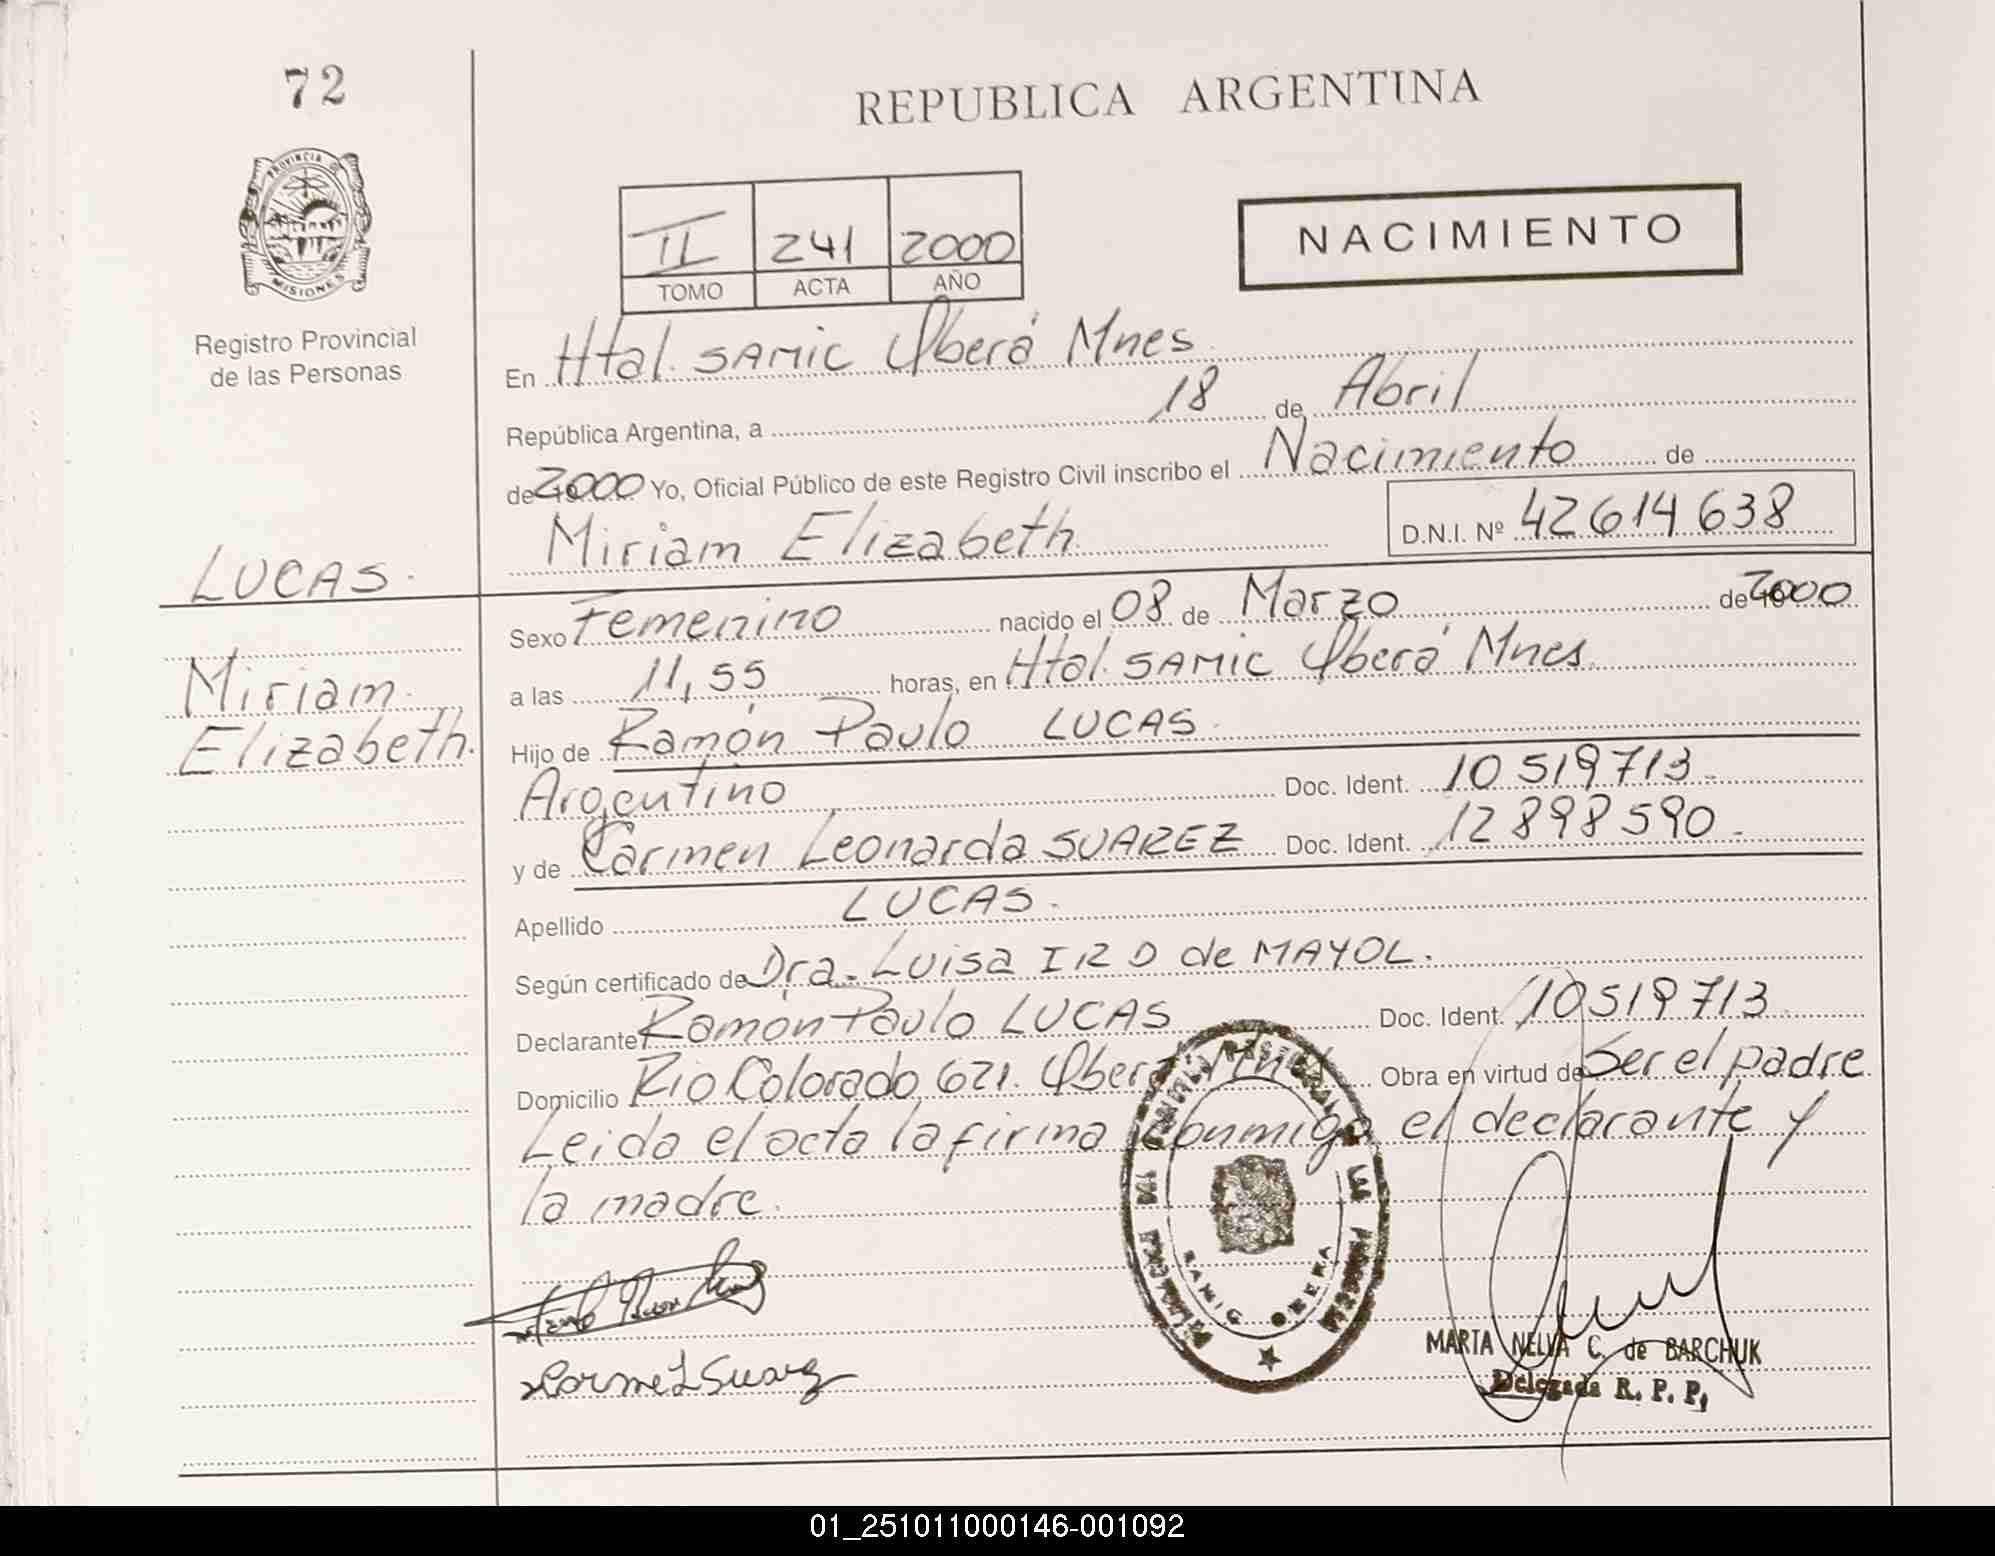 72
REPUBLICA ARGENTINA
PROVINCIA DE
MISIONES
Registro Provincial
de las Personas
II 241 2000
TOMO ACTA AÑO
NACIMIENTO
En Htal. SAMIC Oberá Mnes.
República Argentina, a 18 de Abril
de 2000 Yo, Oficial Público de este Registro Civil inscribo el Nacimiento de
Miriam Elizabeth D.N.I. Nº 42614638
LUCAS.
Miriam
Elizabeth.
Sexo Femenino nacido el 08 de Marzo de 2000
a las 11,55 horas, en Htal. SAMIC Oberá Mnes.
Hijo de Ramón Paulo LUCAS.
Argentino Doc. Ident. 10519713.
y de Carmen Leonarda SUAREZ Doc. Ident. 12898590.
Apellido LUCAS.
Según certificado de Dra. Luisa IRD de MAYOL.
Declarante Ramón Paulo LUCAS Doc. Ident. 10519713
Domicilio Rio Colorado 621. Oberá Mnes Obra en virtud de Ser el padre.
Leida el acta la firma conmigo el declarante y
la madre.
SAMIC OBERA
Carme L Suarez
MARTA NELVA C. de BARCHUK
Delegada R. P. P.
01_251011000146-001092